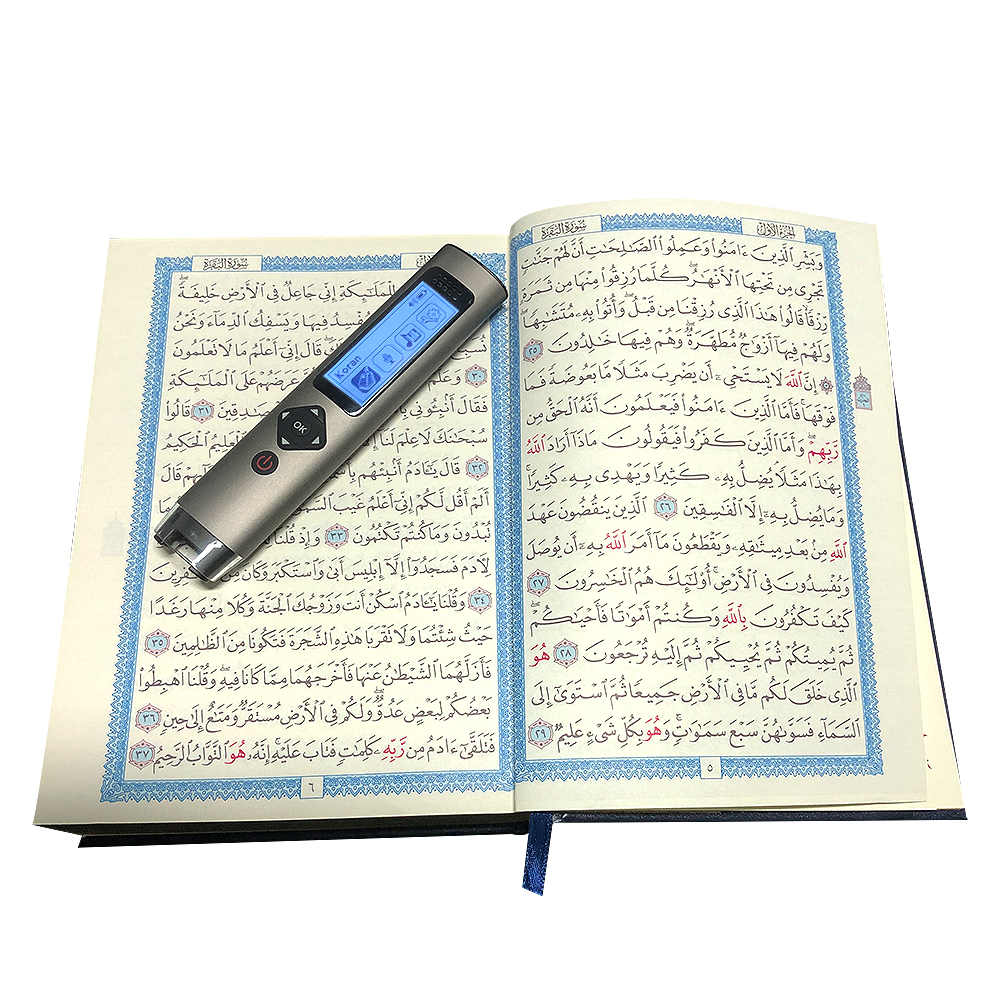 سُورَةُ البَقَرَةِ
الجُزْءُ الأَوَّلُ
وَبَشِّرِ ٱلَّذِينَ ءَامَنُوا۟ وَعَمِلُوا۟ ٱلصَّـٰلِحَـٰتِ أَنَّ لَهُمْ جَنَّـٰتٍ
تَجْرِى مِن تَحْتِهَا ٱلْأَنْهَـٰرُ ۖ كُلَّمَا رُزِقُوا۟ مِنْهَا مِن ثَمَرَةٍ
رِّزْقًا قَالُوا۟ هَـٰذَا ٱلَّذِى رُزِقْنَا مِن قَبْلُ ۖ وَأُتُوا۟ بِهِۦ مُتَشَـٰبِهًا ۖ
وَلَهُمْ فِيهَآ أَزْوَٰجٌ مُّطَهَّرَةٌ ۖ وَهُمْ فِيهَا خَـٰلِدُونَ ٢٥
۞ إِنَّ ٱللَّهَ لَا يَسْتَحْىِۦٓ أَن يَضْرِبَ مَثَلًا مَّا بَعُوضَةً فَمَا
فَوْقَهَا ۚ فَأَمَّا ٱلَّذِينَ ءَامَنُوا۟ فَيَعْلَمُونَ أَنَّهُ ٱلْحَقُّ مِن
رَّبِّهِمْ ۖ وَأَمَّا ٱلَّذِينَ كَفَرُوا۟ فَيَقُولُونَ مَاذَآ أَرَادَ ٱللَّهُ
بِهَـٰذَا مَثَلًا ۘ يُضِلُّ بِهِۦ كَثِيرًا وَيَهْدِى بِهِۦ كَثِيرًا ۚ
وَمَا يُضِلُّ بِهِۦٓ إِلَّا ٱلْفَـٰسِقِينَ ٢٦ ٱلَّذِينَ يَنقُضُونَ عَهْدَ
ٱللَّهِ مِنۢ بَعْدِ مِيثَـٰقِهِۦ وَيَقْطَعُونَ مَآ أَمَرَ ٱللَّهُ بِهِۦٓ أَن يُوصَلَ
وَيُفْسِدُونَ فِى ٱلْأَرْضِ ۚ أُو۟لَـٰٓئِكَ هُمُ ٱلْخَـٰسِرُونَ ٢٧
كَيْفَ تَكْفُرُونَ بِٱللَّهِ وَكُنتُمْ أَمْوَٰتًا فَأَحْيَـٰكُمْ ۖ
ثُمَّ يُمِيتُكُمْ ثُمَّ يُحْيِيكُمْ ثُمَّ إِلَيْهِ تُرْجَعُونَ ٢٨ هُوَ
ٱلَّذِى خَلَقَ لَكُم مَّا فِى ٱلْأَرْضِ جَمِيعًا ثُمَّ ٱسْتَوَىٰٓ إِلَى
ٱلسَّمَآءِ فَسَوَّىٰهُنَّ سَبْعَ سَمَـٰوَٰتٍ ۚ وَهُوَ بِكُلِّ شَىْءٍ عَلِيمٌ ٢٩
٥
سُورَةُ البَقَرَةِ
لِلْمَلَـٰٓئِكَةِ إِنِّى جَاعِلٌ فِى ٱلْأَرْضِ خَلِيفَةً ۖ
يُفْسِدُ فِيهَا وَيَسْفِكُ ٱلدِّمَآءَ وَنَحْنُ
نُسَبِّحُ قَالَ إِنِّىٓ أَعْلَمُ مَا لَا تَعْلَمُونَ
٣٠ وَعَلَّمَ عَرَضَهُمْ عَلَى ٱلْمَلَـٰٓئِكَةِ
فَقَالَ أَنۢبِـُٔونِى صَـٰدِقِينَ ٣١ قَالُوا۟
سُبْحَـٰنَكَ لَا عِلْمَ لَنَآ ٱلْعَلِيمُ ٱلْحَكِيمُ
٣٢ قَالَ يَـٰٓـَٔادَمُ أَنۢبِئْهُم قَالَ
أَلَمْ أَقُل لَّكُمْ إِنِّىٓ أَعْلَمُ غَيْبَ
تُبْدُونَ وَمَا كُنتُمْ تَكْتُمُونَ ٣٣ وَإِذْ قُلْنَا
لِـَٔادَمَ فَسَجَدُوٓا۟ إِلَّآ إِبْلِيسَ أَبَىٰ وَٱسْتَكْبَرَ وَكَانَ مِنَ ٱلْكَـٰفِرِينَ
٣٤ وَقُلْنَا يَـٰٓـَٔادَمُ ٱسْكُنْ أَنتَ وَزَوْجُكَ ٱلْجَنَّةَ وَكُلَا مِنْهَا رَغَدًا
حَيْثُ شِئْتُمَا وَلَا تَقْرَبَا هَـٰذِهِ ٱلشَّجَرَةَ فَتَكُونَا مِنَ ٱلظَّـٰلِمِينَ ٣٥
فَأَزَلَّهُمَا ٱلشَّيْطَـٰنُ عَنْهَا فَأَخْرَجَهُمَا مِمَّا كَانَا فِيهِ ۖ وَقُلْنَا ٱهْبِطُوا۟
بَعْضُكُمْ لِبَعْضٍ عَدُوٌّ ۖ وَلَكُمْ فِى ٱلْأَرْضِ مُسْتَقَرٌّ وَمَتَـٰعٌ إِلَىٰ حِينٍ ٣٦
فَتَلَقَّىٰٓ ءَادَمُ مِن رَّبِّهِۦ كَلِمَـٰتٍ فَتَابَ عَلَيْهِ ۚ إِنَّهُۥ هُوَ ٱلتَّوَّابُ ٱلرَّحِيمُ ٣٧
٦
Koran
OK